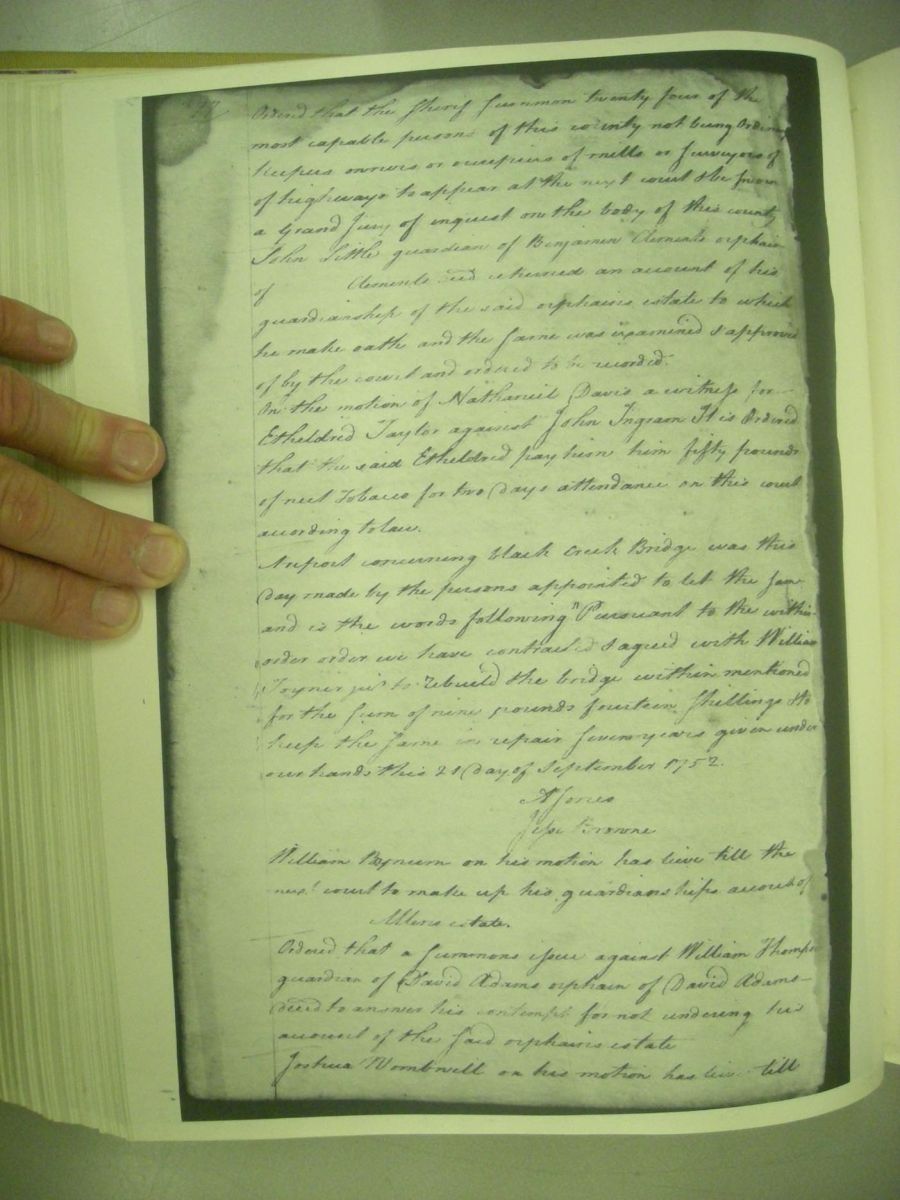 Ordered that the Sherif Summon twenty four of the
most capable persons of this county not being Ordinary
keepers owners or occupiers of mills or Surveyors of
of highways to appear at the next court to be Sworn
a Grand Jury of inquest on the body of this county
John Little guardian of Benjamin Clements orphan
of Clements returned an account of his
guardianship of the said orphans estate to which
he make oath and the Same was examined & approved
of by the court and ordered to be recorded.
On the motion of Nathaniel Davis a witness for
Etheldred Taylor against John Ingram It is Ordered
that the said Etheldred pay him him fifty pounds
of neet Tobacco for two days attendance on this court
according to law.
A report concerning black Creek Bridge was this
day made by the persons appointed to let the Same
and is the words following " Pursuant to the within
order order we have contracted & agreed with William
Joyner junr to rebuild the bridge within mentioned
for the Sum of nine pounds fourteen Shillings & to
keep the Same in repair Seven years given under
our hands this 21 day of September 1752.
A Jones
Jesse Browne
William Bynum on his motion has leive till the
next court to make up his guardianships account of
estate.
Ordered that a Summons issue against William Thompson
guardian of David Adams orphain of David Adams
decd to answer his contempt for not rendering his
account of the Said orphains estate
Joshua Wombwell on his motion has leive till